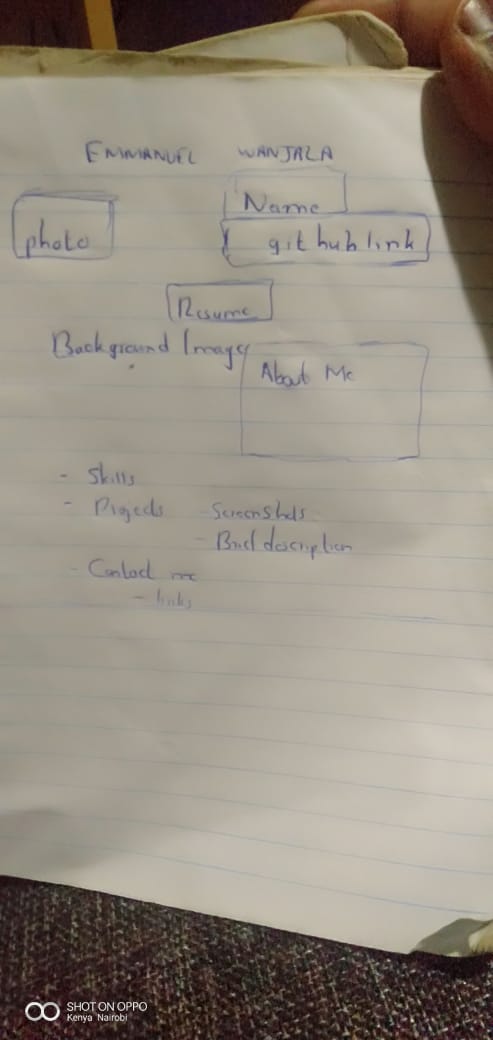 EMMANUEL WANJALA
Name
photo
github link
Resume
Background Image
About Me
- Skills
- Projects - Screenshots
- Brief description
- Contact me
- links
SHOT ON OPPO
Kenya Nairobi